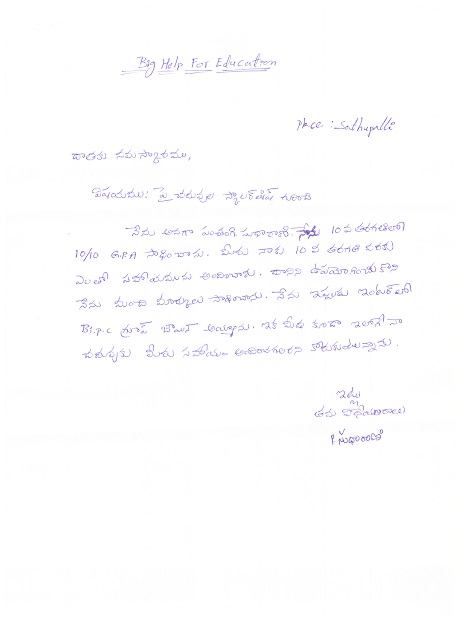 Big Help For Education
Place : Sathupalli
దాతకు నమస్కారము,
విషయము: పై చదువుల స్కాలర్‌షిప్ గురించి
నేను అనగా పంతంగి సుధారాణి. నేను 10 వ తరగతిలో
10/10 G.P.A సాధించాను. మీరు నాకు 10 వ తరగతి వరకు
ఎంతో సహాయమును అందించారు. దానిని ఉపయోగించుకొని
నేను మంచి మార్కులు సాధించాను. నేను ఇప్పుడు ఇంటర్‌లో
Bi.p.c గ్రూప్ జాయిన్ అయ్యాను. ఇక మీరు కూడా ఇలాగే నా
చదువుకు మీరు సహాయం అందించగలరని కోరుకుంటున్నాను.
ఇట్లు
తమ విధేయురాలు
P సుధారాణి